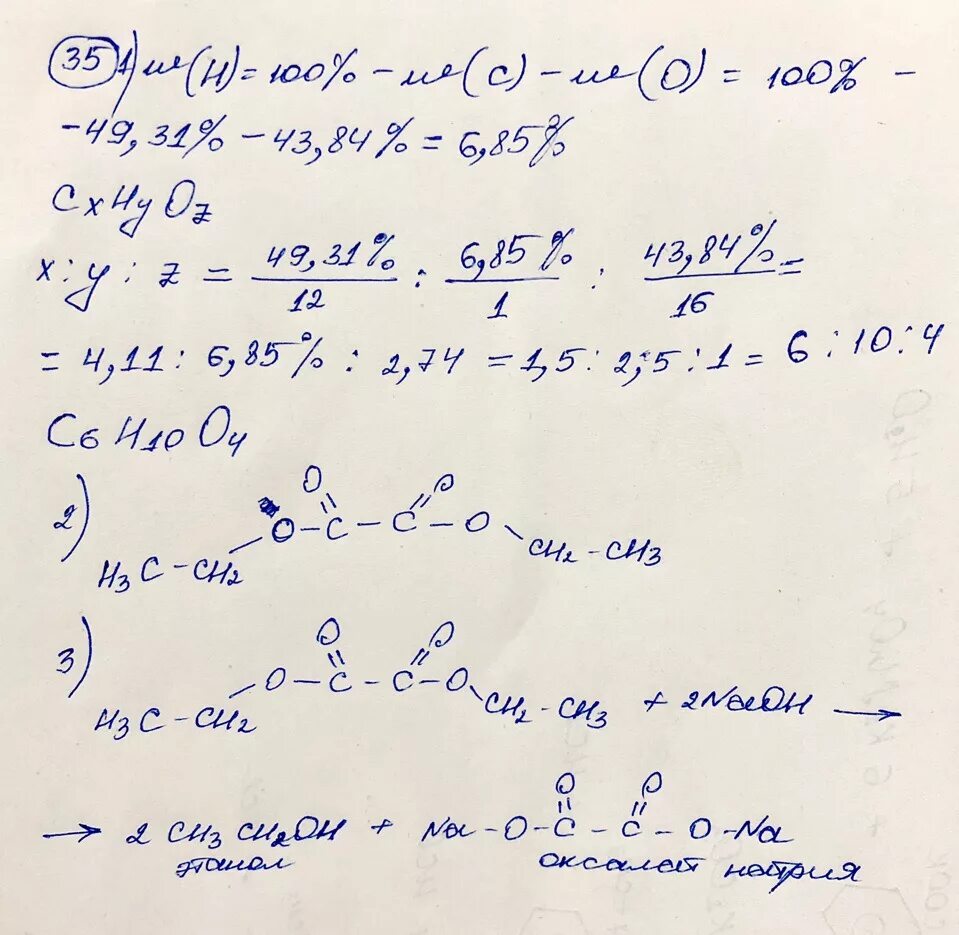 35 1) ω(H) = 100% − ω(C) − ω(O) = 100% −
−49,31% − 43,84% = 6,85%
CxHyOz
x : y : z = 49,31%/12 : 6,85%/1 : 43,84%/16 =
= 4,11 : 6,85% : 2,74 = 1,5 : 2,5 : 1 = 6 : 10 : 4
C6H10O4
2)
O O
O − C − C − O
H3C − CH2 CH2 − CH3
3)
O O
O − C − C − O
H3C − CH2 CH2 − CH3 + 2NaOH →
O O
→ 2 CH3CH2OH + Na − O − C − C − O − Na
этанол оксалат натрия